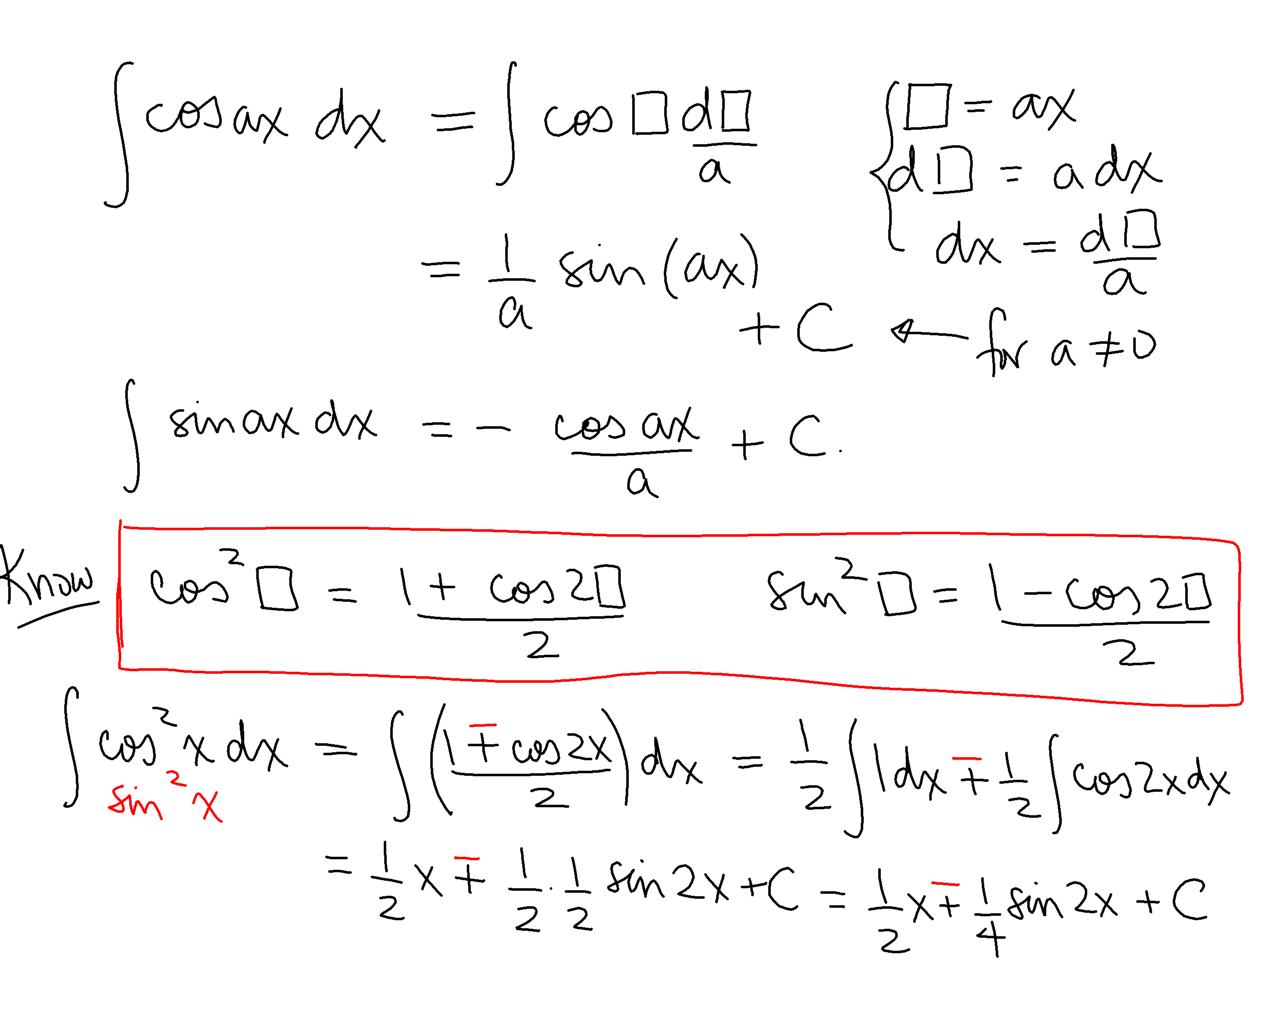 ∫ cos ax dx = ∫ cos □ d□/a { □ = ax
d□ = a dx
= 1/a sin (ax) dx = d□/a
+ C ← for a ≠ 0
∫ sin ax dx = - cos ax/a + C.
Know cos² □ = 1 + cos 2□/2 sin² □ = 1 - cos 2□/2
∫ cos² x dx = ∫ (1 ∓ cos 2x/2) dx = 1/2 ∫ 1 dx ∓ 1/2 ∫ cos 2x dx
sin² x
= 1/2 x ∓ 1/2 · 1/2 sin 2x + C = 1/2 x ∓ 1/4 sin 2x + C